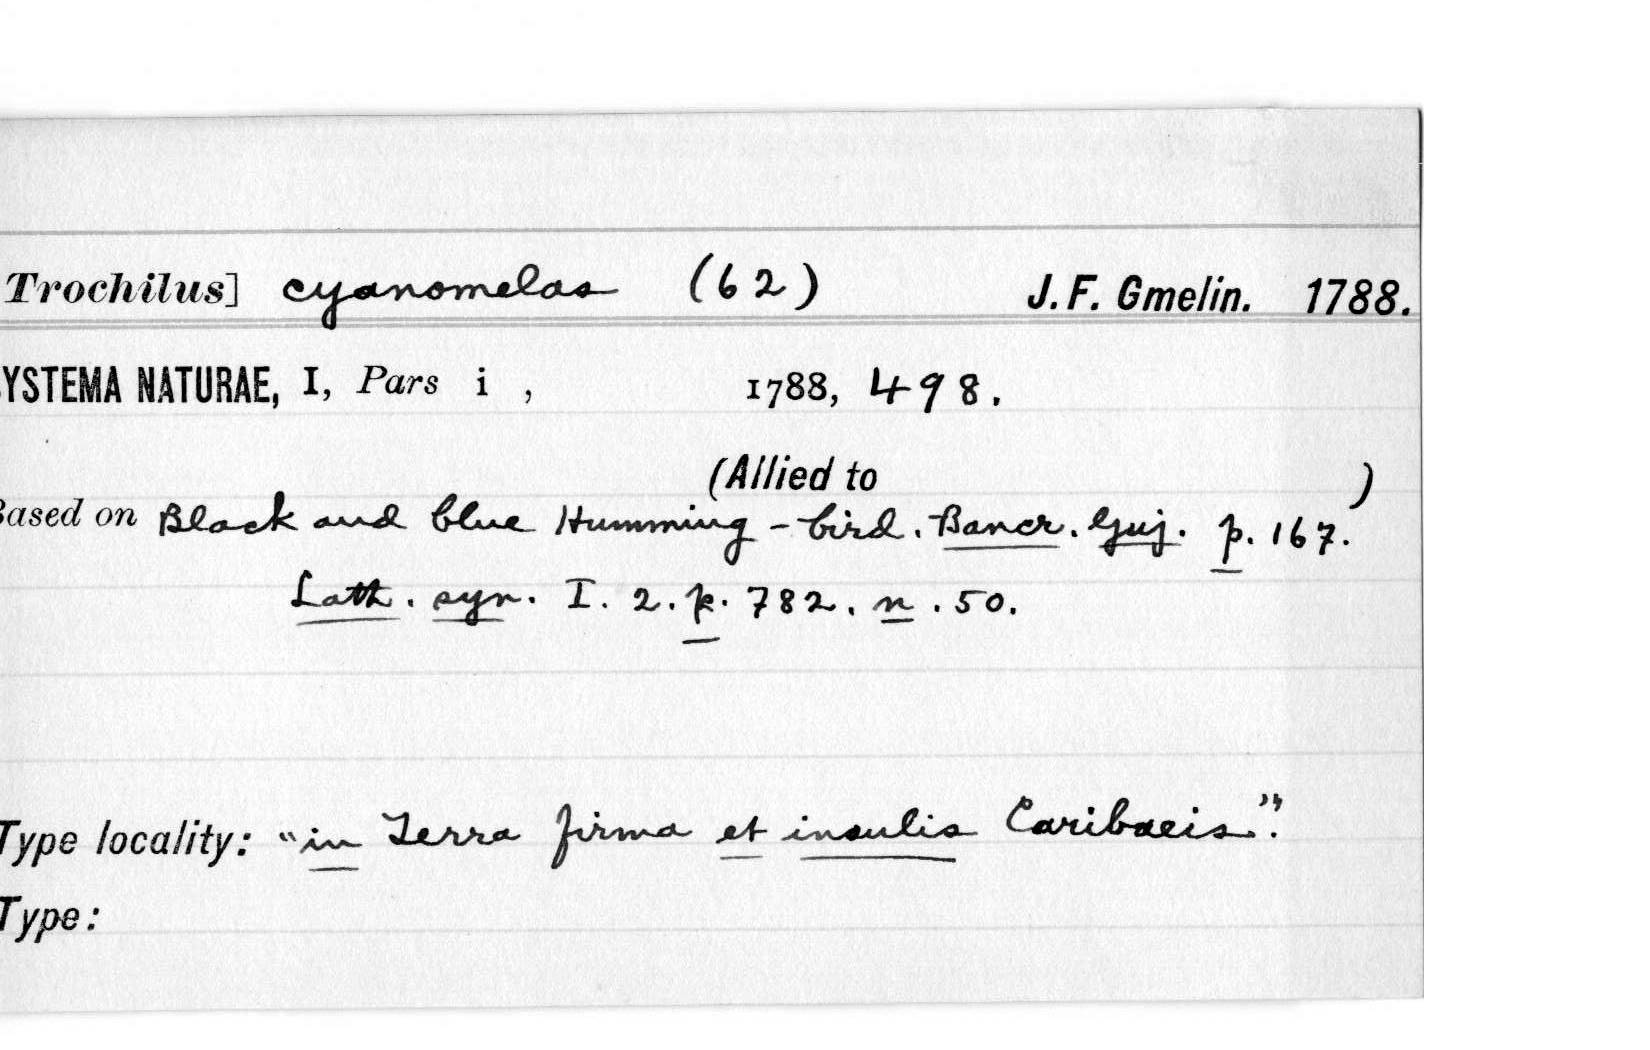 Trochilus] cyanomelas (62) J. F. Gmelin. 1788.
YSTEMA NATURAE, I, Pars i , 1788, 498.
(Allied to )
Based on Black and blue Humming-bird. Bancr. Guj. p. 167.
Lath. syn. I. 2. p. 782. n. 50.
Type locality: "in Terra firma et insulis Caribaeis".
Type: